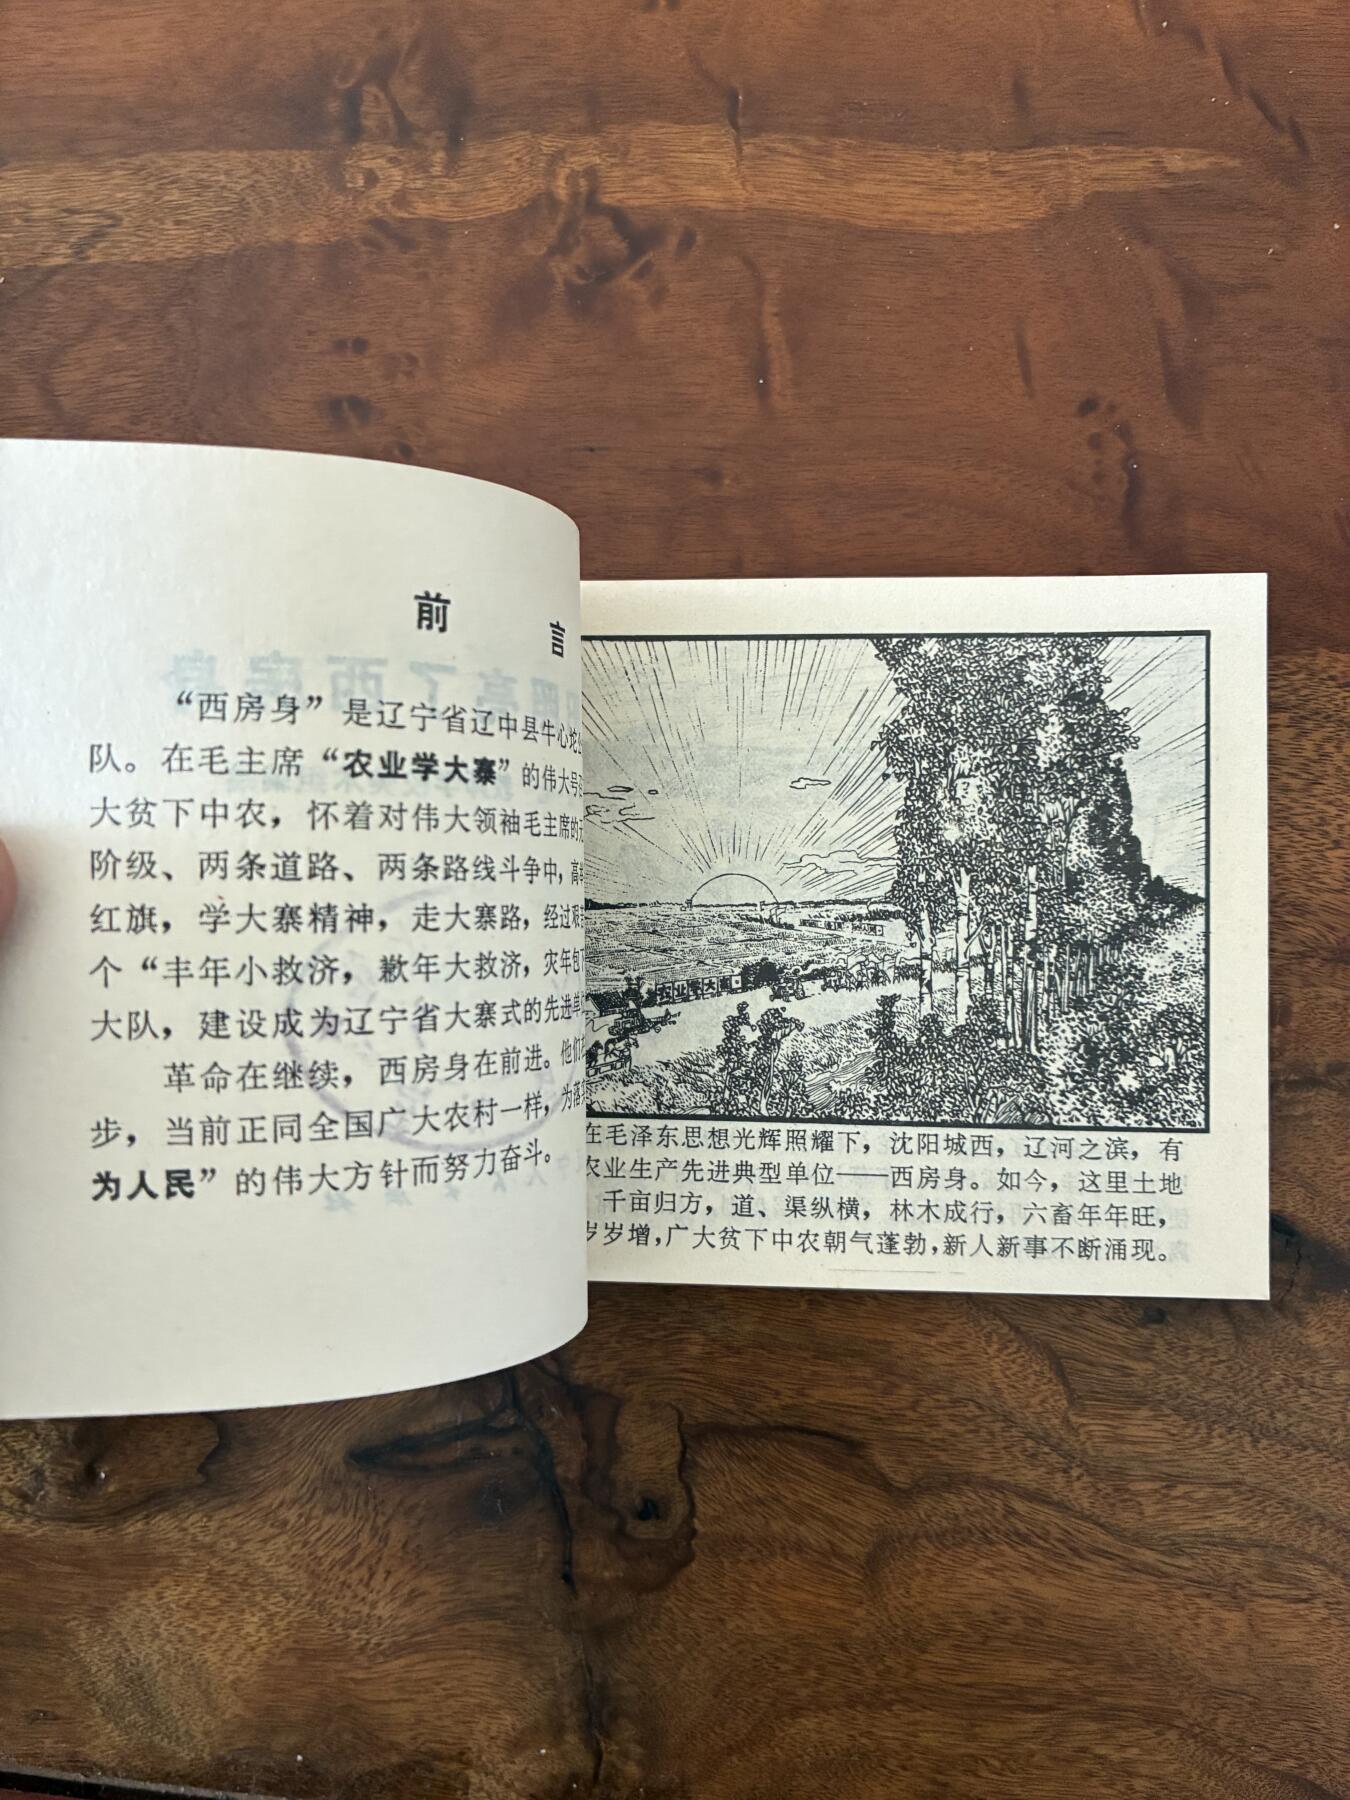 前言
“西房身”是辽宁省辽中县牛心坨
队。在毛主席“农业学大寨”的伟大号
大贫下中农，怀着对伟大领袖毛主席的
阶级、两条道路、两条路线斗争中，高
红旗，学大寨精神，走大寨路，经过
个“丰年小救济，歉年大救济，灾年包
大队，建设成为辽宁省大寨式的先进单
革命在继续，西房身在前进。他们
步，当前正同全国广大农村一样，为落
为人民”的伟大方针而努力奋斗。
农业学大寨
在毛泽东思想光辉照耀下，沈阳城西，辽河之滨，有
农业生产先进典型单位——西房身。如今，这里土地
千亩归方，道、渠纵横，林木成行，六畜年年旺，
岁岁增，广大贫下中农朝气蓬勃，新人新事不断涌现。